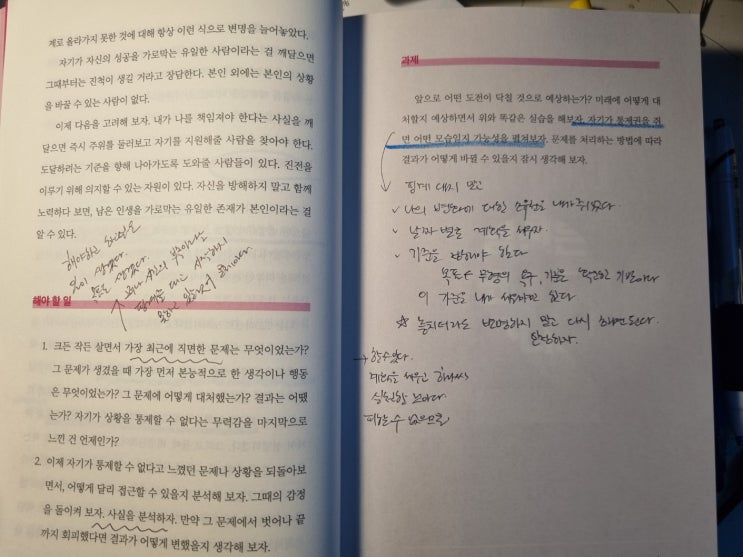 계로 올라가지 못한 것에 대해 항상 이런 식으로 변명을 늘어놓았다.
자기가 자신의 성공을 가로막는 유일한 사람이라는 걸 깨달으면
그때부터는 진척이 생길 거라고 장담한다. 본인 외에는 본인의 상황
을 바꿀 수 있는 사람이 없다.
이제 다음을 고려해 보자. 내가 나를 책임져야 한다는 사실을 깨
달으면 즉시 주위를 둘러보고 자기를 지원해줄 사람을 찾아야 한다.
도달하려는 기준을 향해 나아가도록 도와줄 사람들이 있다. 진전을
이루기 위해 의지할 수 있는 자원이 있다. 자신을 방해하지 말고 함께
노력하다 보면, 남은 인생을 가로막는 유일한 존재가 본인이라는 걸
알 수 있다.
해야 할 일
1. 크든 작든 살면서 가장 최근에 직면한 문제는 무엇이었는가?
그 문제가 생겼을 때 가장 먼저 본능적으로 한 생각이나 행동
은 무엇이었는가? 그 문제에 어떻게 대처했는가? 결과는 어땠
는가? 자기가 상황을 통제할 수 없다는 무력감을 마지막으로
느낀 건 언제인가?
2. 이제 자기가 통제할 수 없다고 느꼈던 문제나 상황을 되돌아보
면서, 어떻게 달리 접근할 수 있을지 분석해 보자. 그때의 감정
을 돌이켜 보자. 사실을 분석하자. 만약 그 문제에서 벗어나 끝
까지 회피했다면 결과가 어떻게 변했을지 생각해 보자.
과제
앞으로 어떤 도전이 닥칠 것으로 예상하는가? 미래에 어떻게 대
처할지 예상하면서 위와 똑같은 실습을 해보자. 자기가 통제권을 쥐
면 어떤 모습일지 가능성을 펼쳐보자. 문제를 처리하는 방법에 따라
결과가 어떻게 바뀔 수 있을지 잠시 생각해 보자.
핑계 대지 말고
나의 변화에 대한 소유권은 내가 쥐었다.
날짜별로 계획을 세우자.
기준을 정해야 한다
목표는 무형의 욕구, 기준은 기법이다
이 기준을 내가 세워야만 한다
☆ 놓치더라도 변명하지 말고 다시 하면된다.
인정하자.
→ 할수있다.
계획을 세우고 하나씩
실천할 뿐이다
피할 수 없으므로